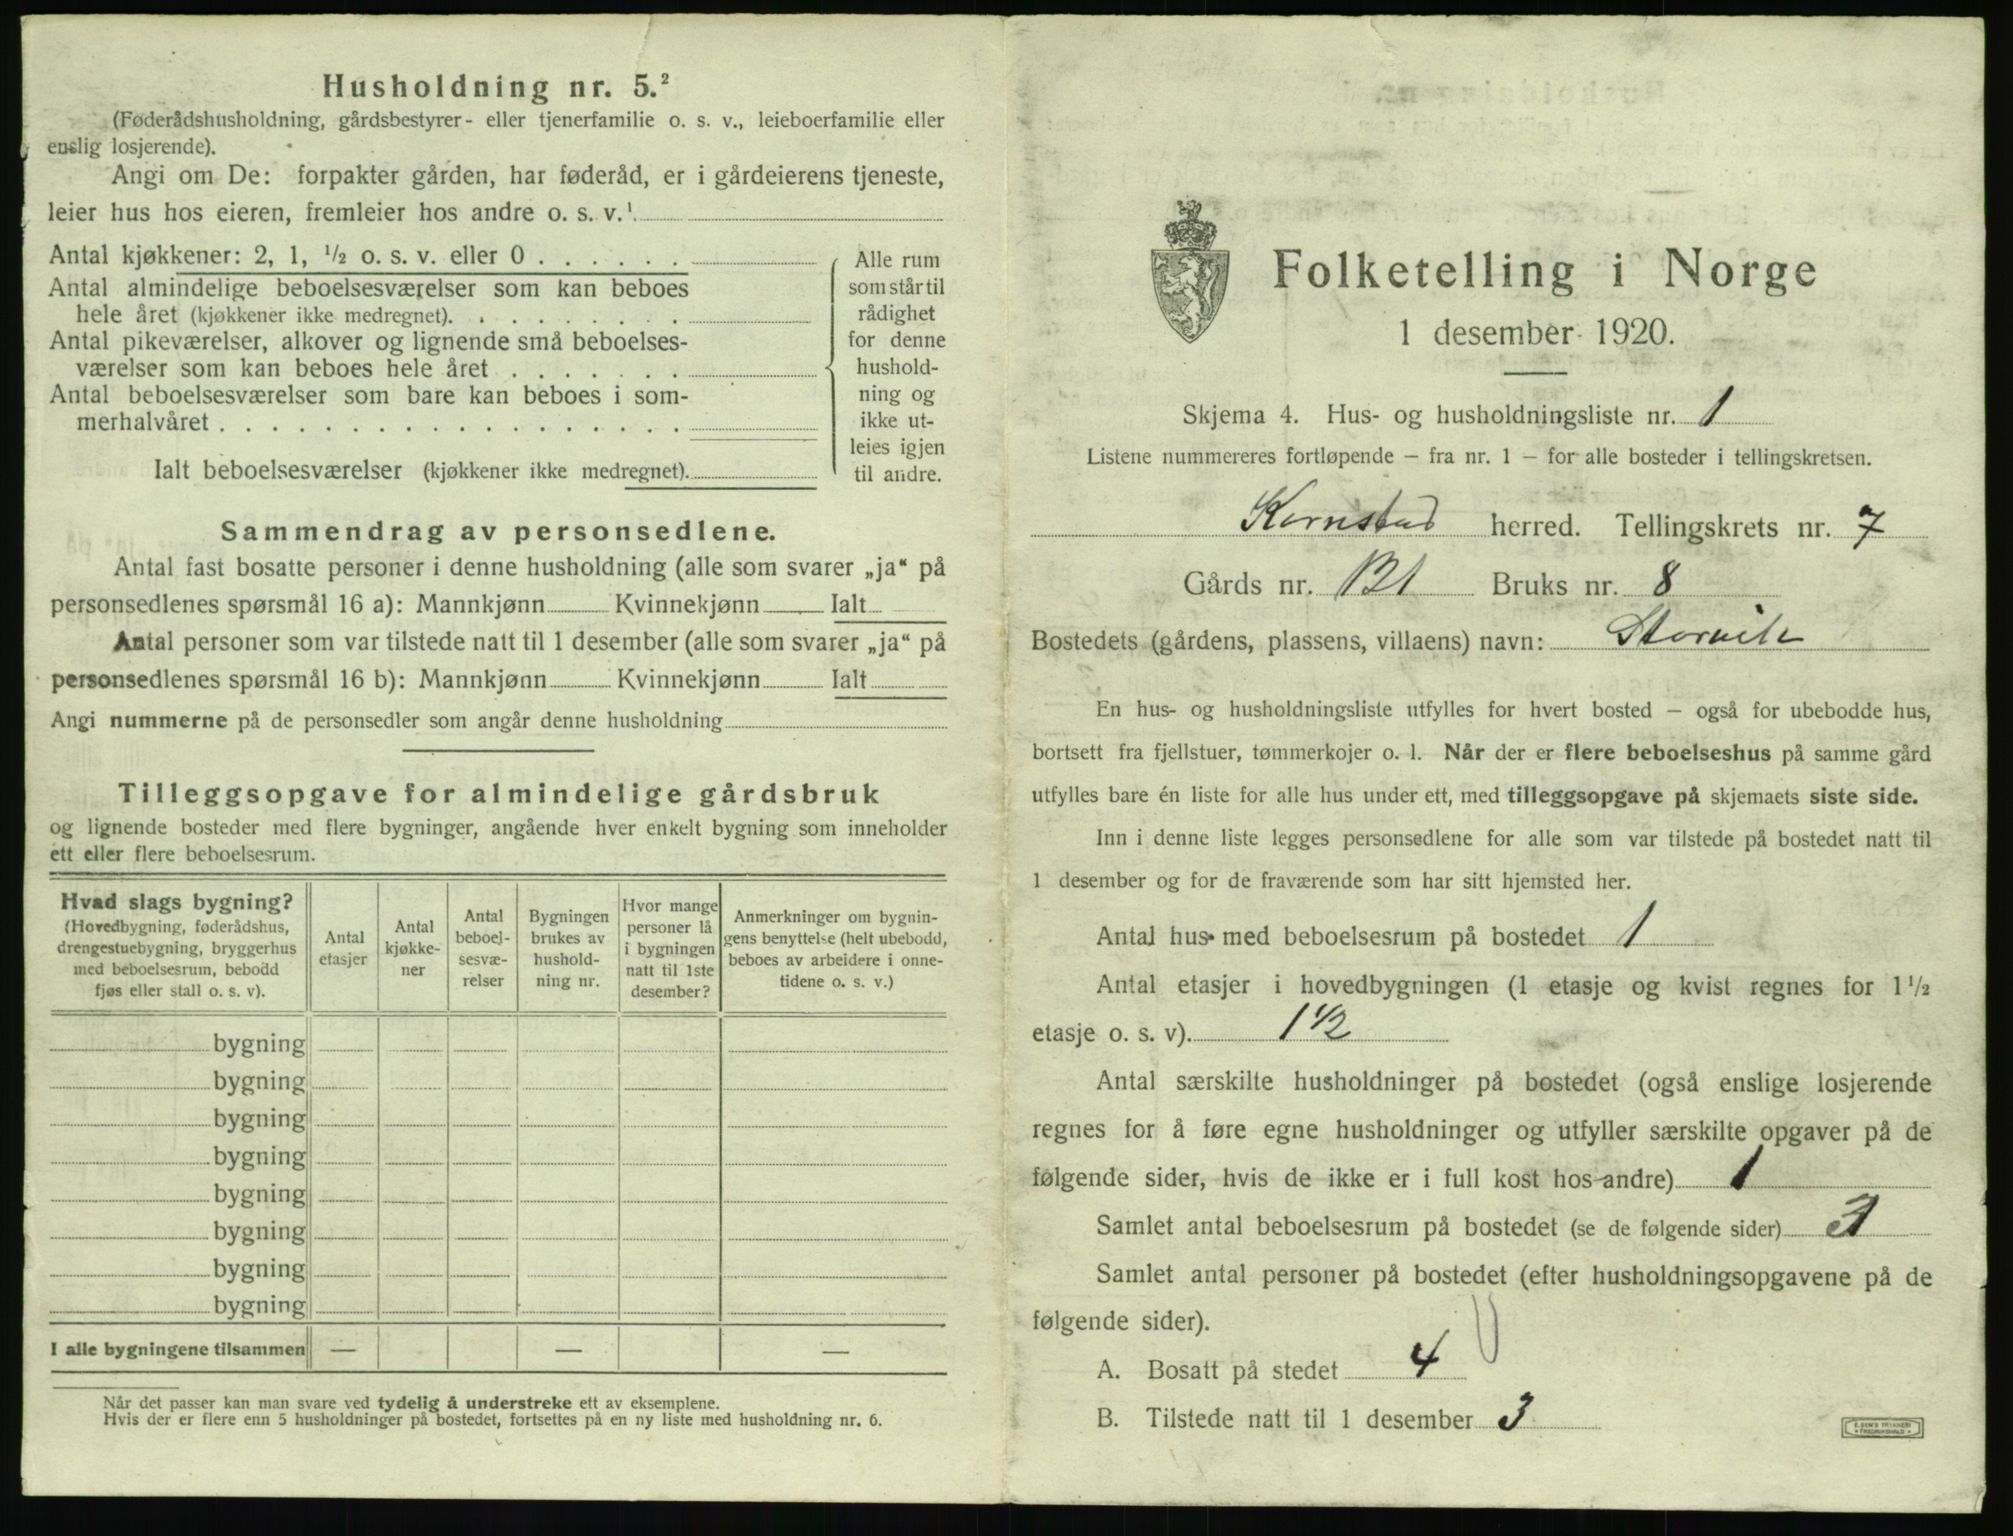 Husholdning nr. 5.²
(Føderådshusholdning, gårdsbestyrer- eller tjenerfamilie o. s. v., leieboerfamilie eller
enslig losjerende).
Angi om De: forpakter gården, har føderåd, er i gårdeierens tjeneste,
leier hus hos eieren, fremleier hos andre o. s. v.¹
Antal kjøkkener: 2, 1, ½ o. s. v. eller 0 . . . . . .
Antal almindelige beboelsesværelser som kan beboes
hele året (kjøkkener ikke medregnet). . . . . . . . .
Antal pikeværelser, alkover og lignende små beboelses-
værelser som kan beboes hele året . . . . . . .
Antal beboelsesværelser som bare kan beboes i som-
merhalvåret . . . . . . . . . . . . . . . . . .
Ialt beboelsesværelser (kjøkkener ikke medregnet).
Alle rum
som står til
rådighet
for denne
hushold-
ning og
ikke ut-
leies igjen
til andre.
Sammendrag av personsedlene.
Antal fast bosatte personer i denne husholdning (alle som svarer „ja“ på
personsedlenes spørsmål 16 a): Mannkjønn Kvinnekjønn Ialt
Antal personer som var tilstede natt til 1 desember (alle som svarer „ja“ på
personsedlenes spørsmål 16 b): Mannkjønn Kvinnekjønn Ialt
Angi nummerne på de personsedler som angår denne husholdning
Tilleggsopgave for almindelige gårdsbruk
og lignende bosteder med flere bygninger, angående hver enkelt bygning som inneholder
ett eller flere beboelsesrum.
Hvad slags bygning?
(Hovedbygning, føderådshus,
drengestuebygning, bryggerhus
med beboelsesrum, bebodd
fjøs eller stall o. s. v).
Antal
etasjer
Antal
kjøkke-
ner
Antal
beboel-
sesvæ-
relser
Bygningen
brukes av
hushold-
ning nr.
Hvor mange
personer lå
i bygningen
natt til 1ste
desember?
Anmerkninger om bygnin-
gens benyttelse (helt ubebodd,
beboes av arbeidere i onne-
tidene o. s. v.)
bygning
bygning
bygning
bygning
bygning
bygning
bygning
bygning
I alle bygningene tilsammen — — —
Når det passer kan man svare ved tydelig å understreke ett av eksemplene.
Hvis der er flere enn 5 husholdninger på bostedet, fortsettes på en ny liste med husholdning nr. 6.
Folketelling i Norge
1 desember 1920.
Skjema 4. Hus- og husholdningsliste nr. 1
Listene nummereres fortløpende – fra nr. 1 – for alle bosteder i tellingskretsen.
Kornstad herred. Tellingskrets nr. 7
Gårds nr. 131 Bruks nr. 8
Bostedets (gårdens, plassens, villaens) navn: Storvik
En hus- og husholdningsliste utfylles for hvert bosted – også for ubebodde hus,
bortsett fra fjellstuer, tømmerkojer o. l. Når der er flere beboelseshus på samme gård
utfylles bare én liste for alle hus under ett, med tilleggsopgave på skjemaets siste side.
Inn i denne liste legges personsedlene for alle som var tilstede på bostedet natt til
1 desember og for de fraværende som har sitt hjemsted her.
Antal hus med beboelsesrum på bostedet 1
Antal etasjer i hovedbygningen (1 etasje og kvist regnes for 1½
etasje o. s. v). 1½
Antal særskilte husholdninger på bostedet (også enslige losjerende
regnes for å føre egne husholdninger og utfyller særskilte opgaver på de
følgende sider, hvis de ikke er i full kost hos andre) 1
Samlet antal beboelsesrum på bostedet (se de følgende sider) 3
Samlet antal personer på bostedet (efter husholdningsopgavene på de
følgende sider).
A. Bosatt på stedet 4
B. Tilstede natt til 1 desember 3